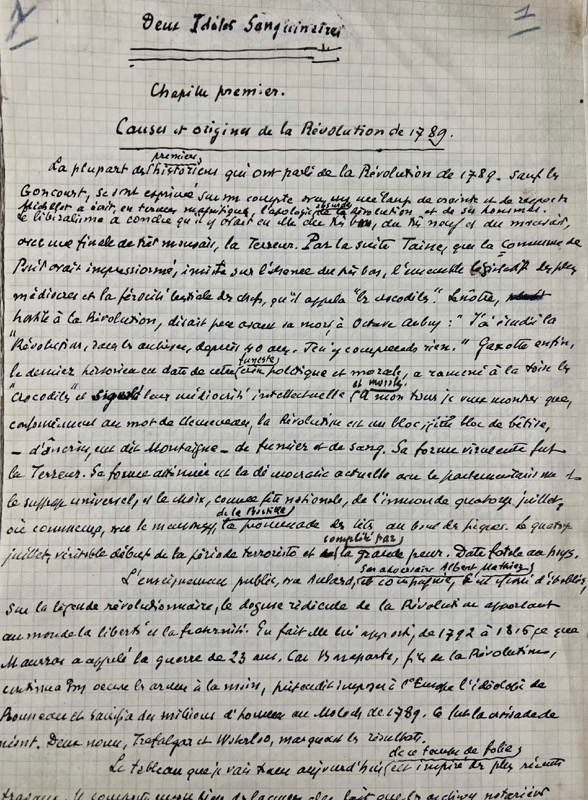 1
Deux Idoles Sanguinaires
Chapitre premier.
Causes et origines de la Révolution de 1789.
premiers
La plupart des historiens qui ont parlé de la Révolution de 1789, sauf les
Goncourt, se sont exprimé sur son compte avec une sorte de crainte et de respect.
Michelet a écrit, en termes magnifiques, l'apologie absurde de la Révolution et de ses hommes.
Le libéralisme a conclu qu'il y avait en elle du très bon, du très neuf et du mauvais,
avec une finale de très mauvais, la Terreur. Par la suite Taine, que la Commune de
Paris avait impressionné, insista sur l'absence du très bon, l'ensemble législatif des plus
médiocres et la férocité bestiale des chefs, qu'il appela "les crocodiles". Lenôtre,
hostile à la Révolution, disait peu avant sa mort à Octave Aubry : "J'ai étudié la
"Révolution, dans les archives, depuis 40 ans. Je n'y comprends rien." Gaxotte enfin,
funeste
le dernier historien en date de cette crise politique et morale, a ramené à la toise les
et morale
"crocodiles" et signalé leur médiocrité intellectuelle. A mon tour je veux montrer que,
conformément au mot de Clemenceau, la Révolution est un bloc, un bloc de bêtise,
– d'ânerie, eut dit Montaigne – de fumier et de sang. Sa forme virulente fut
la Terreur. Sa forme atténuée est la démocratie actuelle avec le parlementarisme et
le suffrage universel, et le choix, comme fête nationale, de l'immonde quatorze juillet,
de la Bastille
où commença, avec le mensonge la promenade des têtes au bout des piques. Le quatorze
complété par
juillet, véritable début de la période terroriste et la grande peur. Date fatale au pays.
son adversaire Albert Mathiez
L'enseignement public, avec Aulard, et compagnie, s'est efforcé d'établir,
sur la légende révolutionnaire, le dogme ridicule de la Révolution apportant
au monde la liberté et la fraternité. En fait elle lui apporta, de 1792 à 1815 ce que
Maurras a appelé la guerre de 23 ans. Car Bonaparte, fils de la Révolution,
continua son œuvre les armes à la main, prétendit imposer à l'Europe l'idéologie de
Rousseau et sacrifia des millions d'hommes au Moloch de 1789. Ce fut la croisade de
néant. Deux noms, Trafalgar et Waterloo, marquent les résultats.
de ce tombe de folies
Le tableau que je vais tracer aujourd'hui est inspiré des plus récents
travaux. Il comporte encore bien des lacunes du fait que les archives notariées